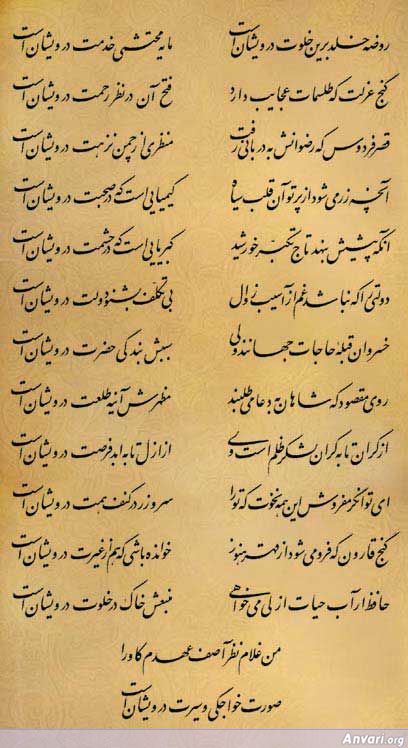 روضه خلد برین خلوت درویشان است مایه محتشمی خدمت درویشان است
گنج عزلت که طلسمات عجایب دارد فتح آن در نظر رحمت درویشان است
قصر فردوس که رضوانش به دربانی رفت منظری از چمن نزهت درویشان است
آنچه زر می شود از پرتو آن قلب سیاه کیمیایی است که در صحبت درویشان است
آنکه پیشش بنهد تاج تکبر خورشید کبریایی است که در حشمت درویشان است
دولتی را که نباشد غم از آسیب زوال بی تکلف بشنو دولت درویشان است
خسروان قبله حاجات جهانند ولی سببش بندگی حضرت درویشان است
روی مقصود که شاهان به دعا می طلبند مظهرش آینه طلعت درویشان است
از کران تا به کران لشکر ظلم است ولی از ازل تا به ابد فرصت درویشان است
ای توانگر مفروش این همه نخوت که تو را سر و زر در کنف همت درویشان است
گنج قارون که فرو می شود از قهر هنوز خوانده باشی که هم از غیرت درویشان است
حافظ ار آب حیات ازلی می خواهی منبعش خاک در خلوت درویشان است
من غلام نظر آصف عهدم کاو را
صورت خواجگی و سیرت درویشان است
Anvari.org